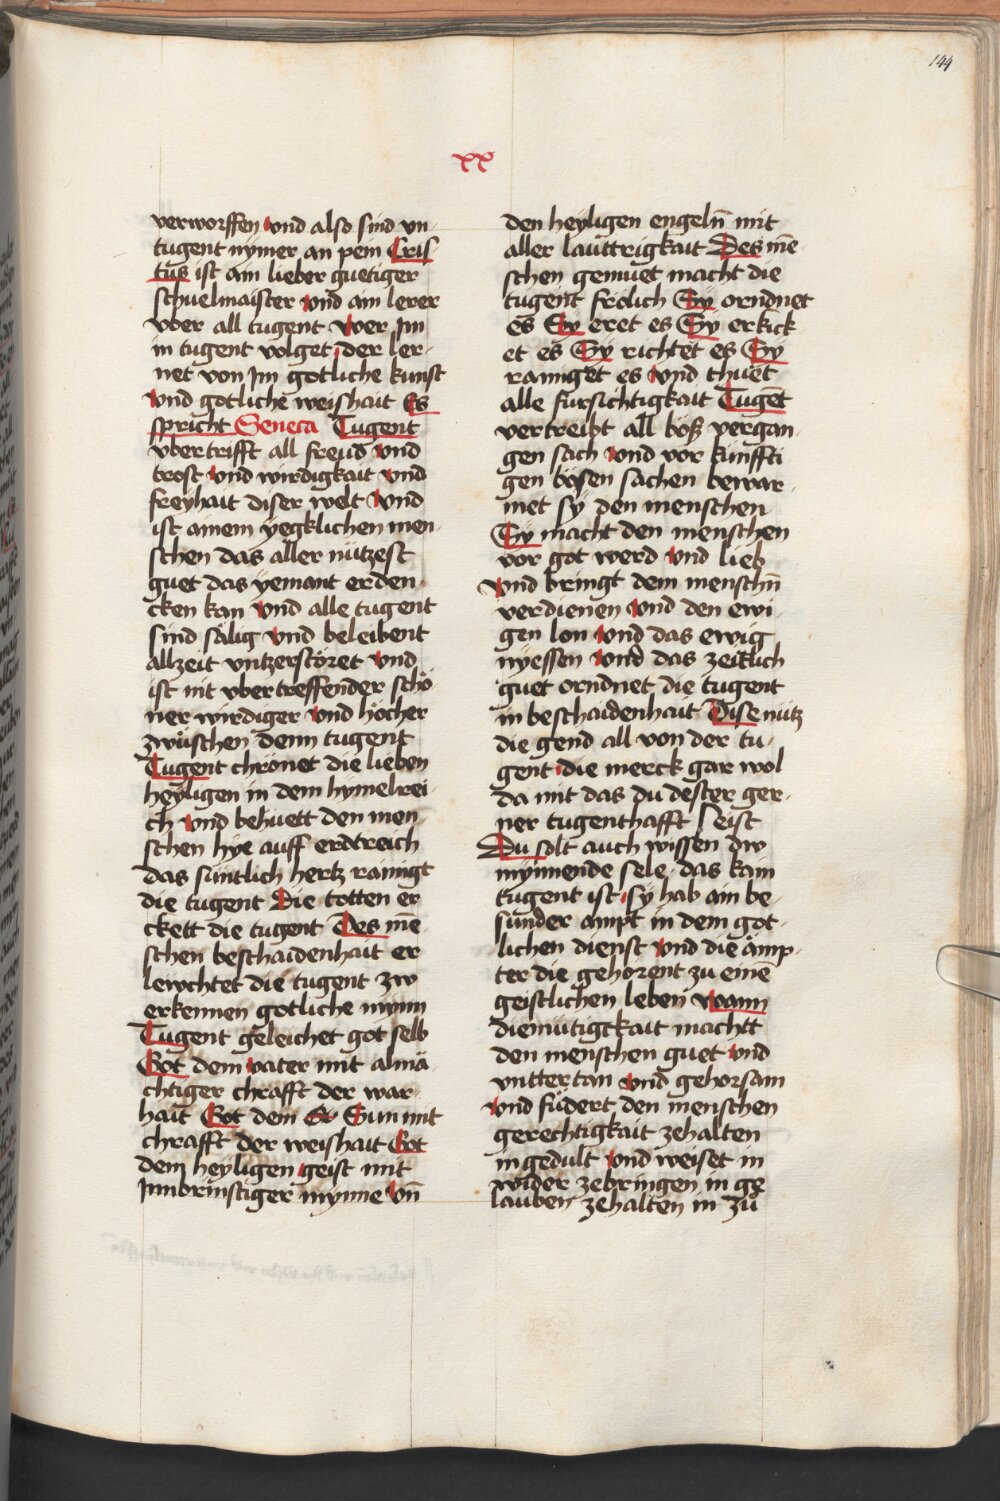 144
xx
verworffen vnd also sind vn-
tugent nymer an pein Cris
tus ist ain lieber guetiger
schuelmaister vnd ain lerer
vber all tugent wer Im
in tugent volget der ler-
net von Im gotliche kunst
vnd gotliche weishait Es
spricht Seneca Tugent
vbertrifft all freud vnd
trost vnd wirdigkait vnd
freyhait diser welt vnd
ist ainem yegklichen men-
schen das aller nützest
guet das yemant erden-
cken kan vnd alle tugent
sind sälig vnd beleibent
allzeit vntzerstöret vnd
ist nit vbertreffender schö
ner wirdiger vnd höcher
zwüschen denn tugent
Tugent chronet die lieben
heyligen in dem hymelrei-
ch vnd behuett den men
schen hye auff erdtreich
das süntlich hertz rainigt
die tugent Die totten er
ckett die tugent Des mē
schen beschaidenhait er
lewchtet die tugent zw
erkennen gotliche mynn
Tugent geleichet got selb
Got dem vater mit almä
chtiger chrafft der war-
hait Got dem Sun mit
chrafft der weishait Got
dem heyligen geist mit
Innbrinstiger mynne vn̄
den heyligen engeln̄ mit
aller lauttrigkait Des mē
schen gemuet macht die
tugent frölich Sy orndnet
es Sy eret es Sy erkick
et es Sy richtet es Sy
rainiget es vnd thuet
alle fürsichtigkait Tugēt
vertreibt all böß vergan-
gen sach vnd vor künffti
gen bösen sachen bewar-
net sy den menschen
Sy macht den menschen
vor got werd vnd lieb
vnd bringt dem menschn̄
verdienen vnd den ewi-
gen lon vnd das ewig
nyessen vnd das zeitlich
guet orndnet die tugent
in beschaidenhait Dise nütz
die gend all von der tu-
gent die merck gar wol
da mit das du dester ger-
ner tugenthafft seist
Du solt auch wissen dw
mynnende sele das kain
tugent ist sy hab ain be-
sunder ampt in dem got-
lichen dienst vnd die ämp-
ter die gehörent zu einē
geistlichen leben wann
diemütigtkait machtt
den menschen guet vnd
vntter tan vnd gehorsam
vnd füdert den menschen
gerechtigkait zehalten
in gedult vnd weiset in
wider zebringen in ge
lauben zehalten in zu